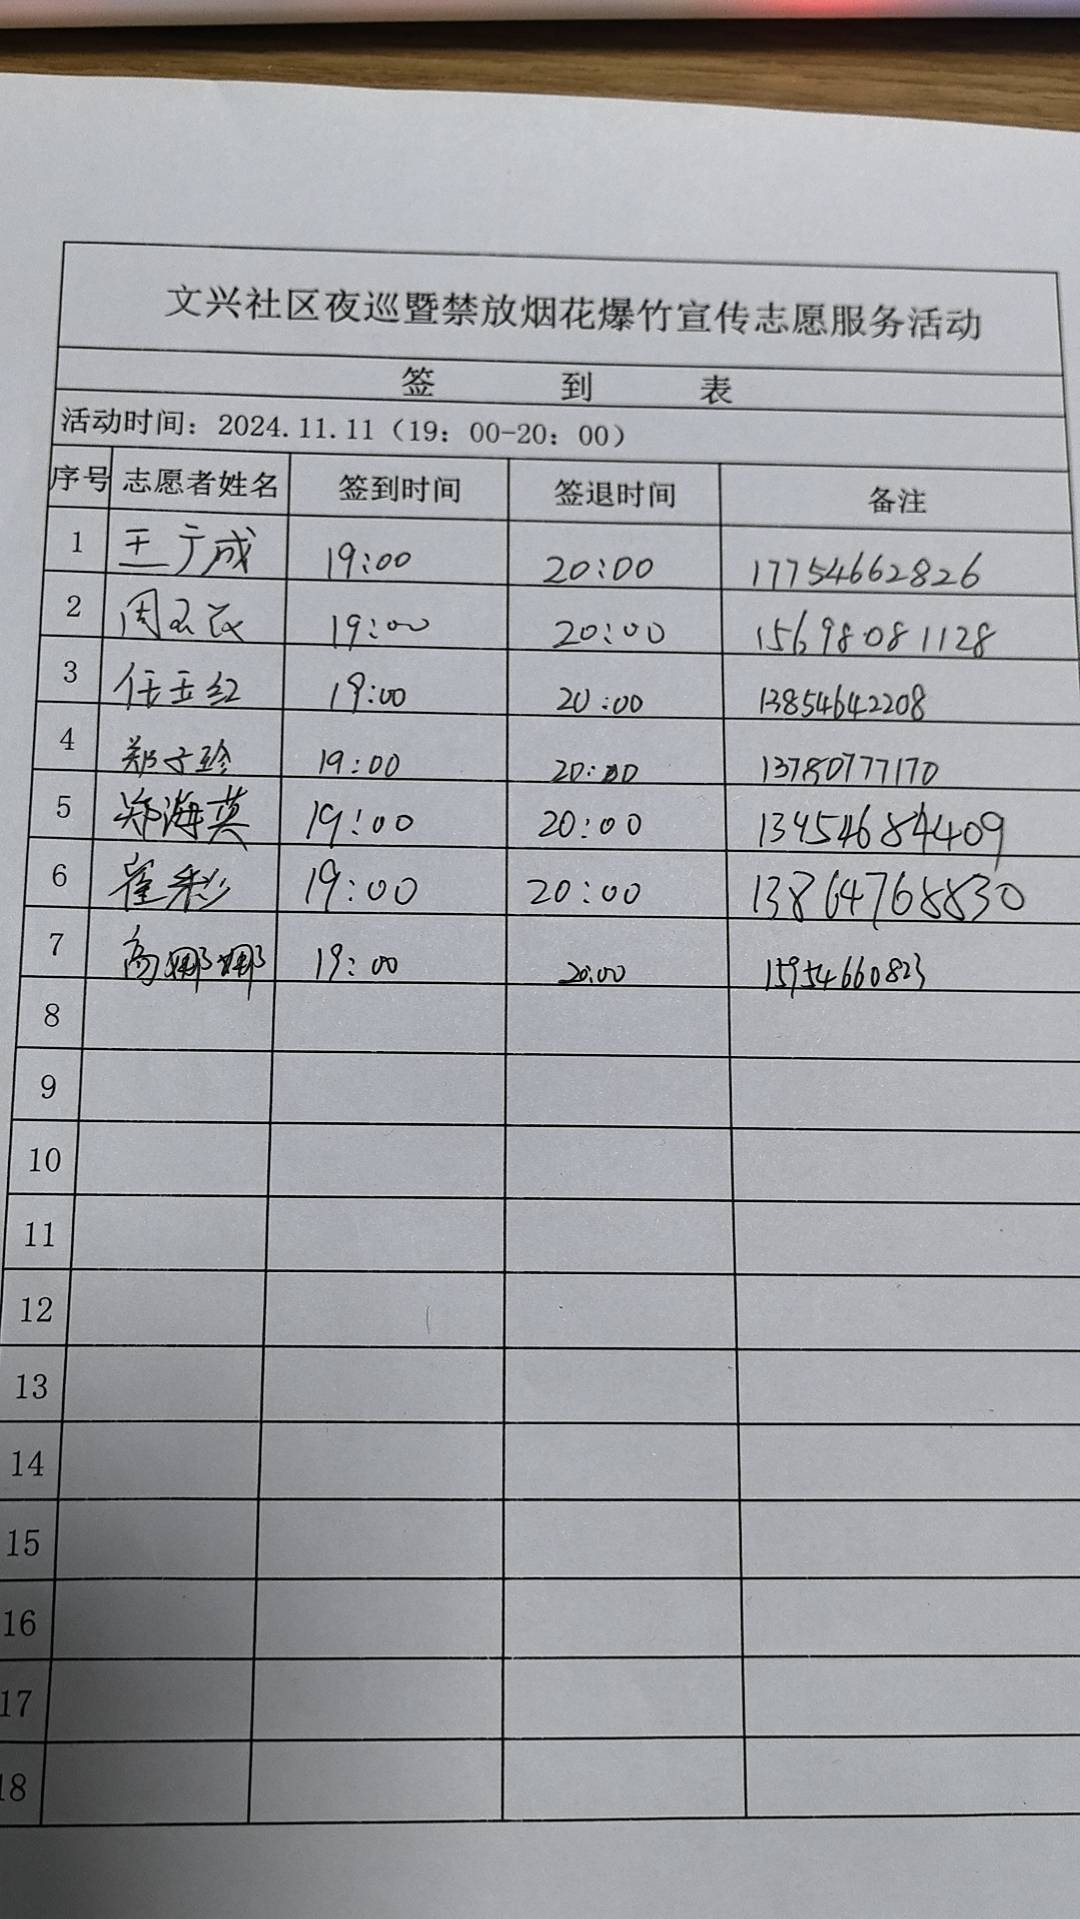 文兴社区夜巡暨禁放烟花爆竹宣传志愿服务活动
签 到 表
活动时间：2024.11.11（19：00-20：00）
序号 志愿者姓名 签到时间 签退时间 备注
1 王广成 19:00 20:00 17754662826
2 周 19:00 20:00 15698081128
3 任玉红 19:00 20:00 13854642208
4 郑子珍 19:00 20:00 13780777170
5 郑海英 19:00 20:00 13454684409
6 崔彩 19:00 20:00 13864768830
7 高娜娜 19:00 20:00 15954660823
8
9
10
11
12
13
14
15
16
17
18